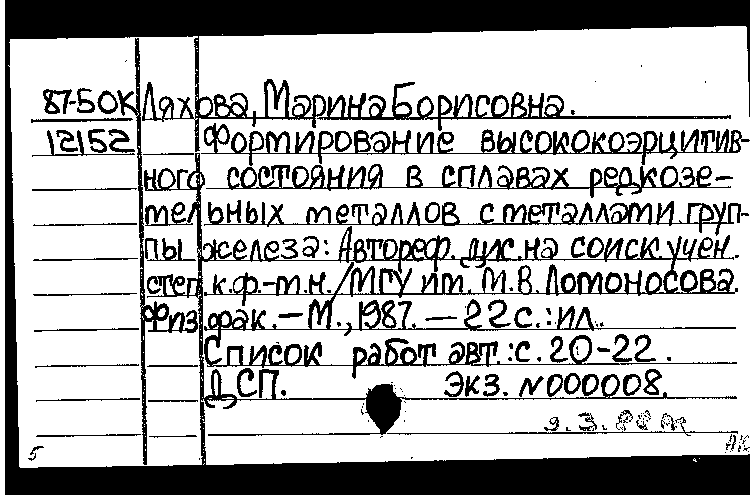 87-5ОК Ляхова, Марина Борисовна.
12152 Формирование высококоэрцитив-
ного состояния в сплавах редкозе-
мельных металлов с металлами груп-
пы железа: Автореф. дис. на соиск. учен.
степ. к.ф.-м.н./МГУ им. М.В. Ломоносова.
Физ. фак. — М., 1987. — 22 с.: ил.
Список работ авт.: с. 20-22.
ДСП. Экз. N000008.
9.3.88
5